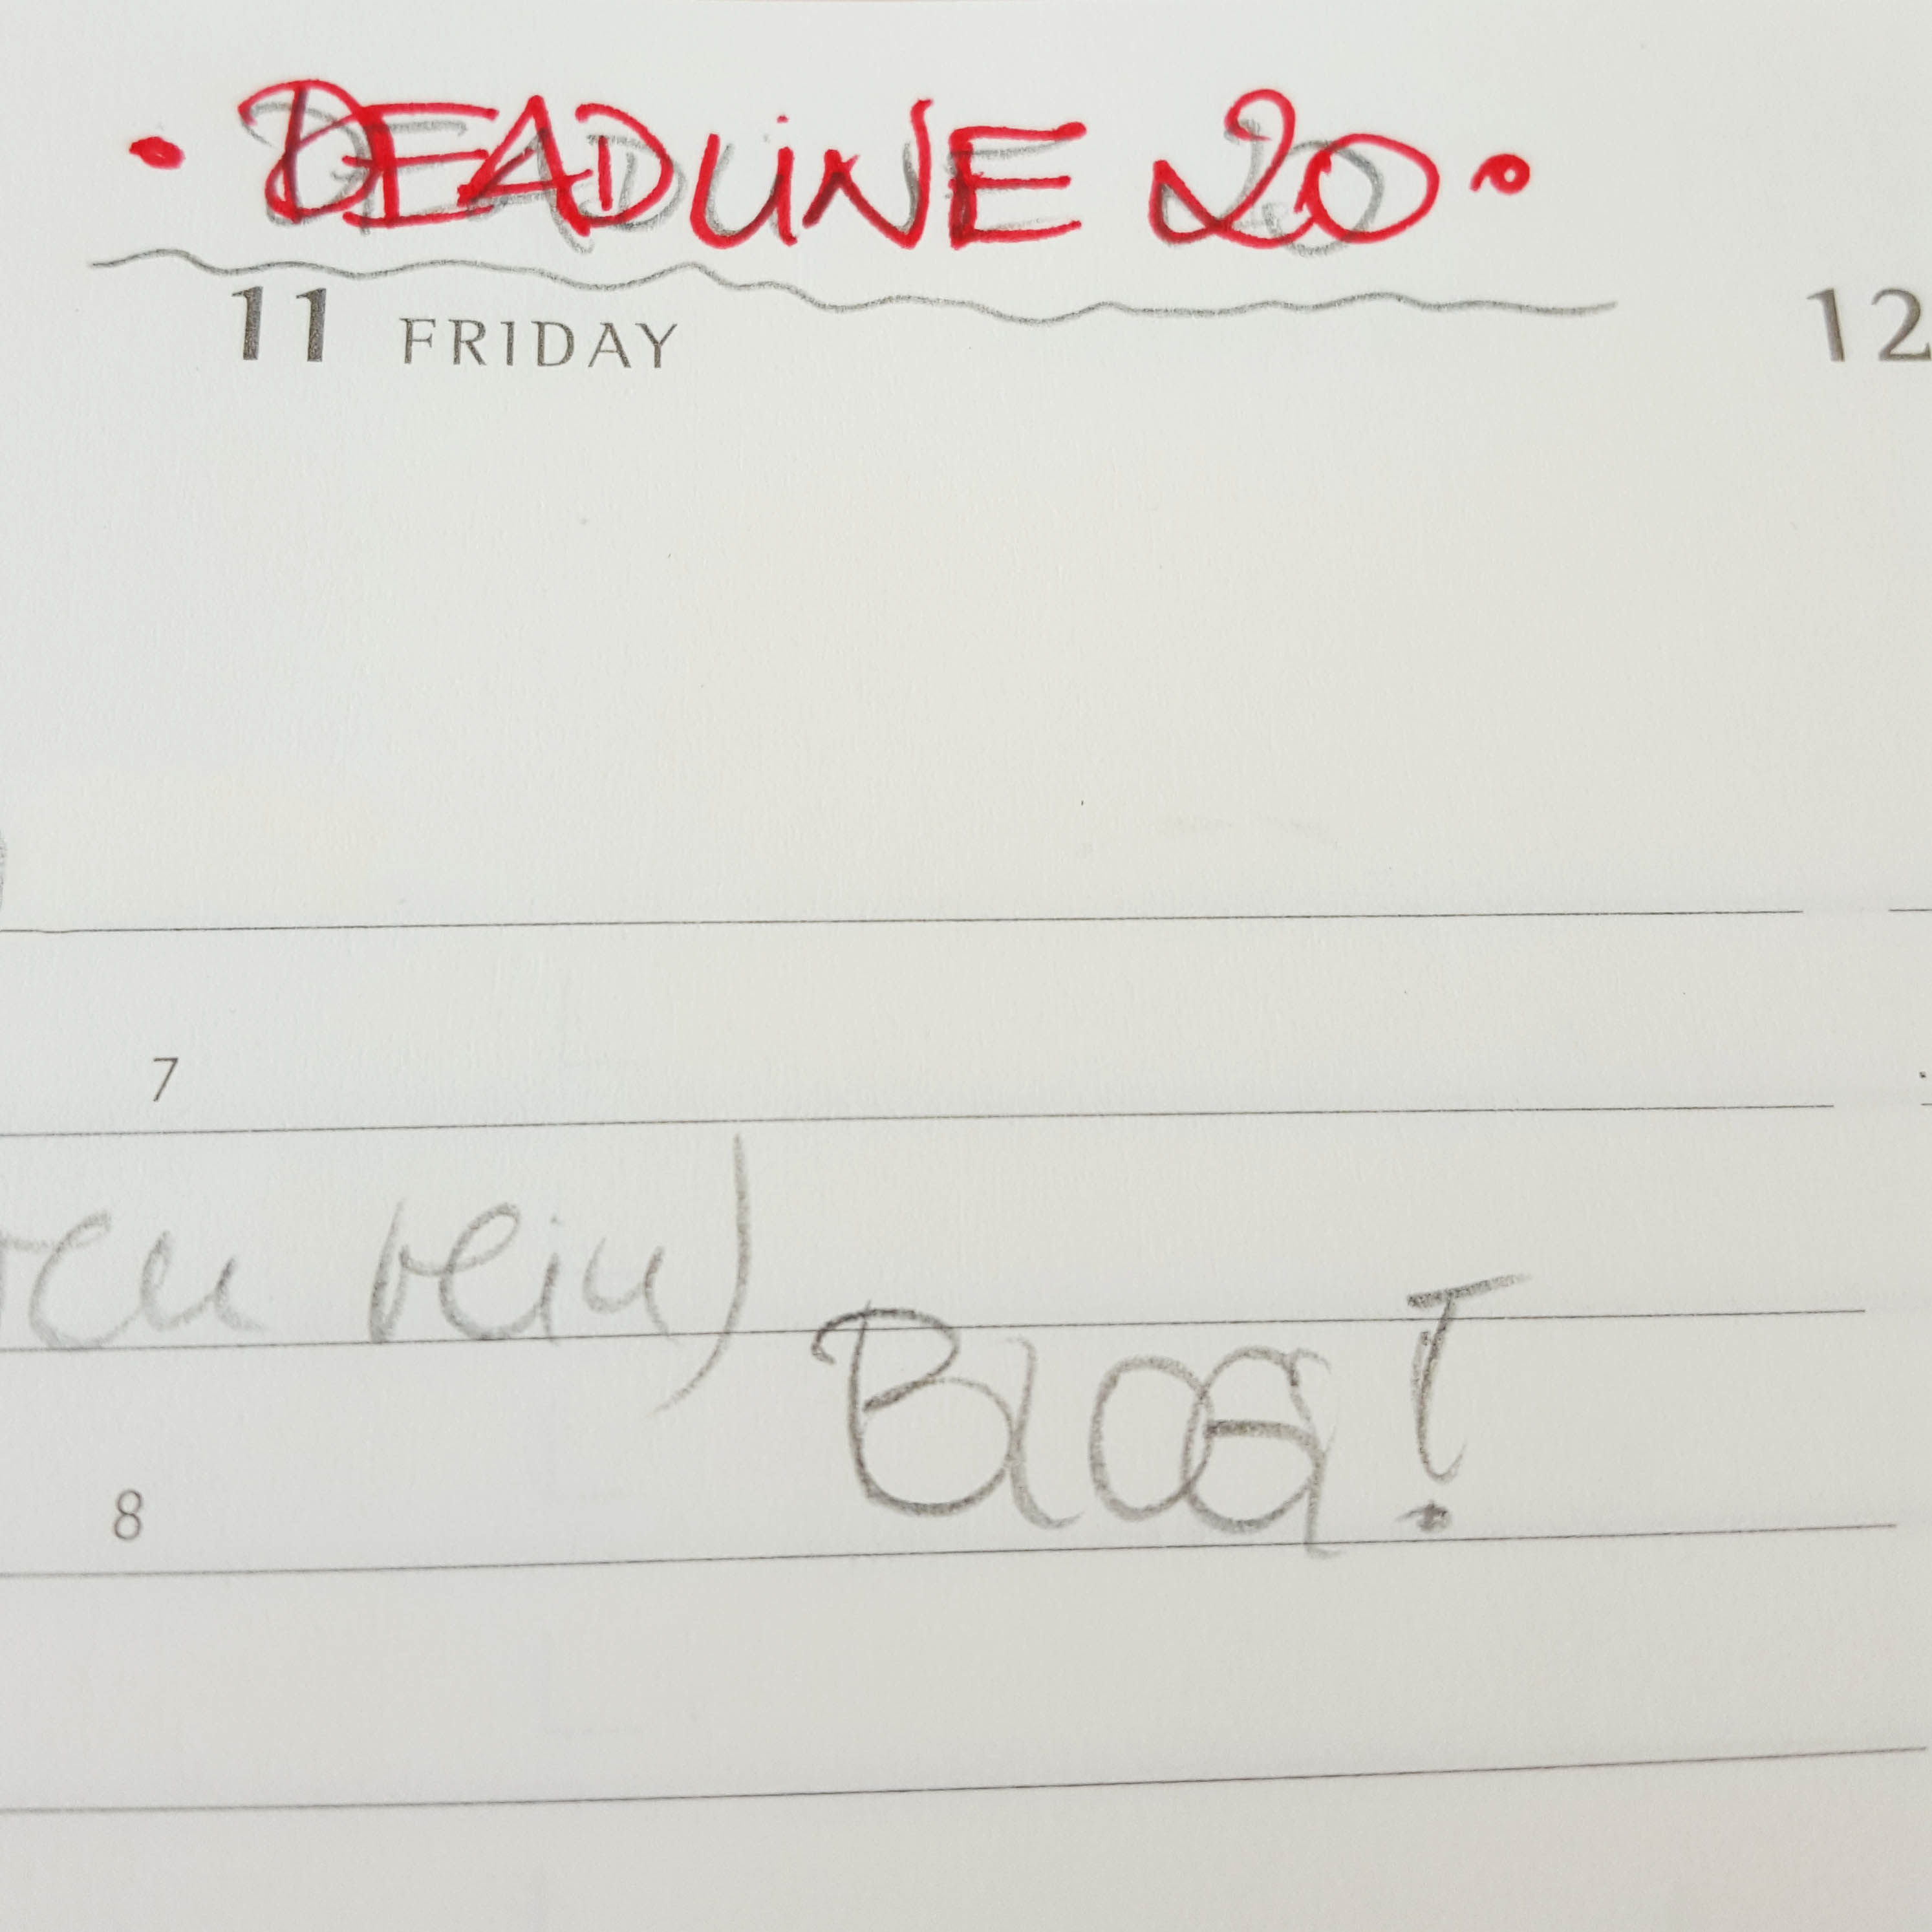 • DEADLINE 20 •
11 FRIDAY 12
7
rein)
BLOG!
8